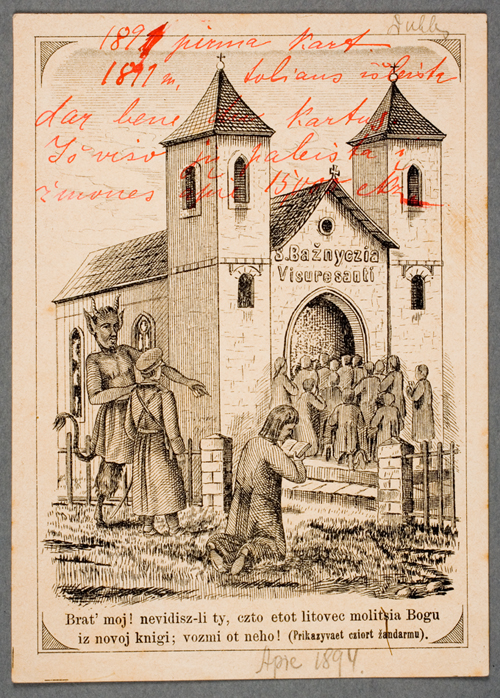 Dubl.
1891 pirma kart
1891 m, toliaus išleista
dar bene du kartus.
Iš viso jų paleista į
žmones apie 1500 ekz.
S. Bažnyczia
Visuresanti
Brat' moj! nevidisz-li ty, czto etot litovec molitsia Bogu
iz novoj knigi; vozmi ot neho! (Prikazyvaet cziort żandarmu).
Apie 1894.